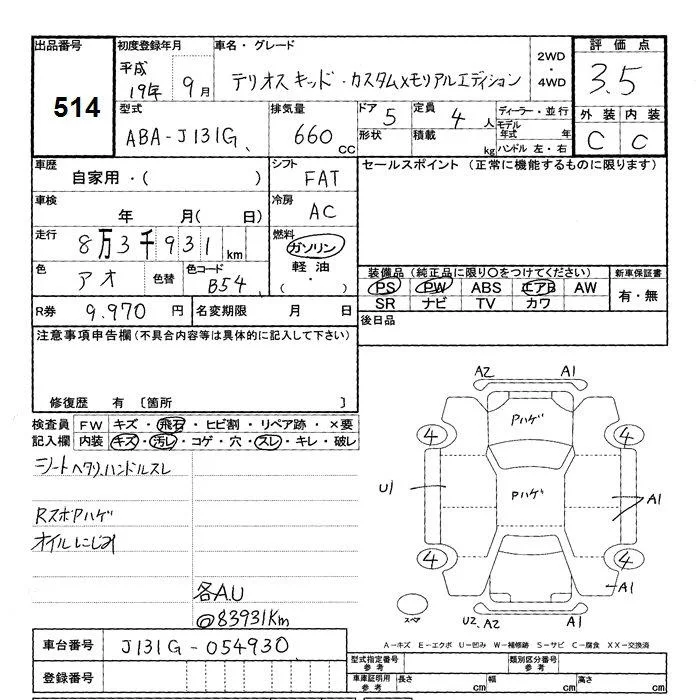 出品番号 514
初度登録年月 平成19年 9月
車名・グレード テリオスキッド・カスタムXモリアルエディション
2WD ・ 4WD
評価点 3.5
外装 C 内装 C
型式 ABA-J131G
排気量 660 CC
ドア 5 形状
定員 4 人 積載 kg
ディーラー・並行
モデル年式 年
ハンドル 左・右
車歴 自家用・( )
シフト FAT
セールスポイント (正常に機能するものに限ります)
車検 年 月( 日)
冷房 AC
走行 8万3千931 km
燃料 ガソリン 軽油 ( ・ )
色 アオ 色替 色コード B54
装備品(純正品に限り○をつけてください)
PS PW ABS エアB AW
SR ナビ TV カワ
新車保証書 有・無
R券 9.970 円 名変期限 月 日
後日品
注意事項申告欄(不具合内容等は具体的に記入して下さい)
修復歴 有 〔箇所 〕
検査員記入欄
FW キズ・飛石・ヒビ割・リペア跡・×要
内装 キズ・汚レ・コゲ・穴・スレ・キレ・破レ
シートヘタリ.ハンドルスレ
RスポPハゲ
オイルにじみ
各A.U
@83931Km
A2 A1
Pハゲ
4 4
U1 Pハゲ A1
4 4
A1
スペア U2.A2 A1
A-キズ E-エクボ U-凹み W-補修跡 S-サビ C-腐食 XX-交換済
車台番号 J131G-054930
登録番号
型式指定番号 参考
類別区分番号 参考
車庫証明用 参考 長さ cm 幅 cm 高さ cm